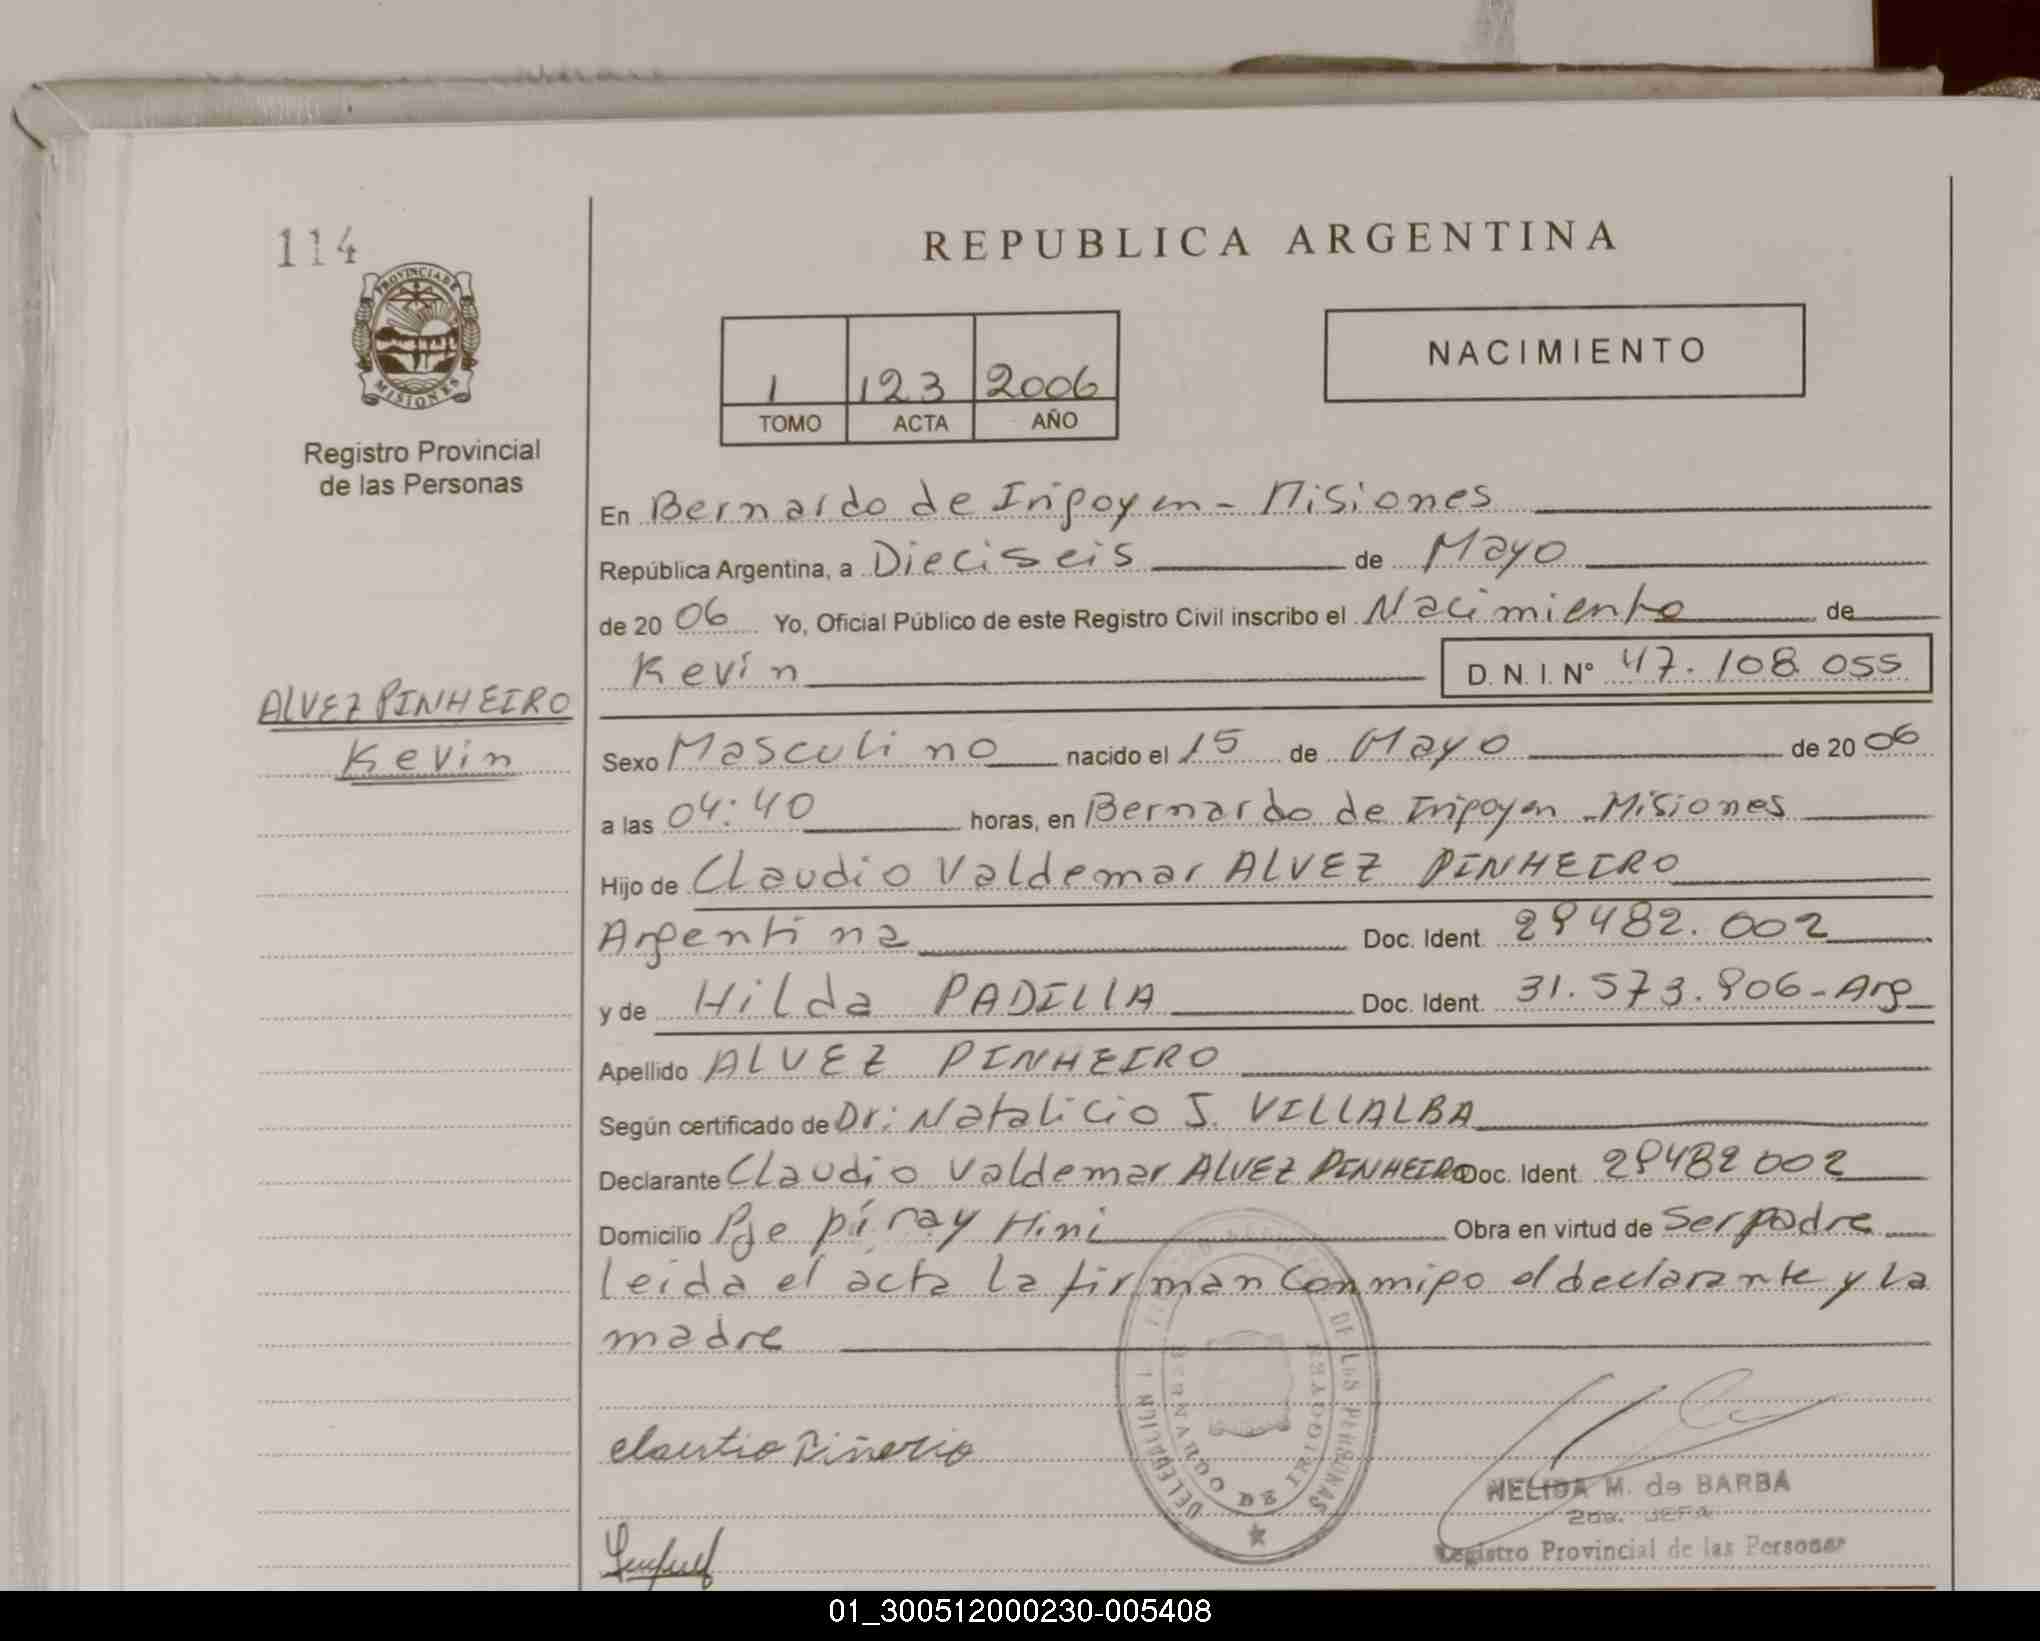 114
PROVINCIA DE
MISIONES
Registro Provincial
de las Personas
ALVEZ PINHEIRO
Kevin
REPUBLICA ARGENTINA
1 123 2006
TOMO ACTA AÑO
NACIMIENTO
En Bernardo de Irigoyen - Misiones
República Argentina, a Dieciseis de Mayo
de 2006 Yo, Oficial Público de este Registro Civil inscribo el Nacimiento de
Kevin D. N. I. N° 47.108.055
Sexo Masculino nacido el 15 de Mayo de 2006
a las 04:40 horas, en Bernardo de Irigoyen - Misiones
Hijo de Claudio Valdemar ALVEZ PINHEIRO
Argentina Doc. Ident. 29482.002
y de Hilda PADILLA Doc. Ident. 31.573.906 - Arg
Apellido ALVEZ PINHEIRO
Según certificado de Dr: Natalicio J. VILLALBA
Declarante Claudio Valdemar ALVEZ PINHEIRO Doc. Ident. 29482002
Domicilio Pje piray Mini Obra en virtud de Ser padre
leida el acta la firman conmigo el declarante y la
madre
DE LAS PERSONAS
BERNARDO DE IRIGOYEN
NELIDA M. de BARBA
2da. JEFA
Registro Provincial de las Personas
01_300512000230-005408